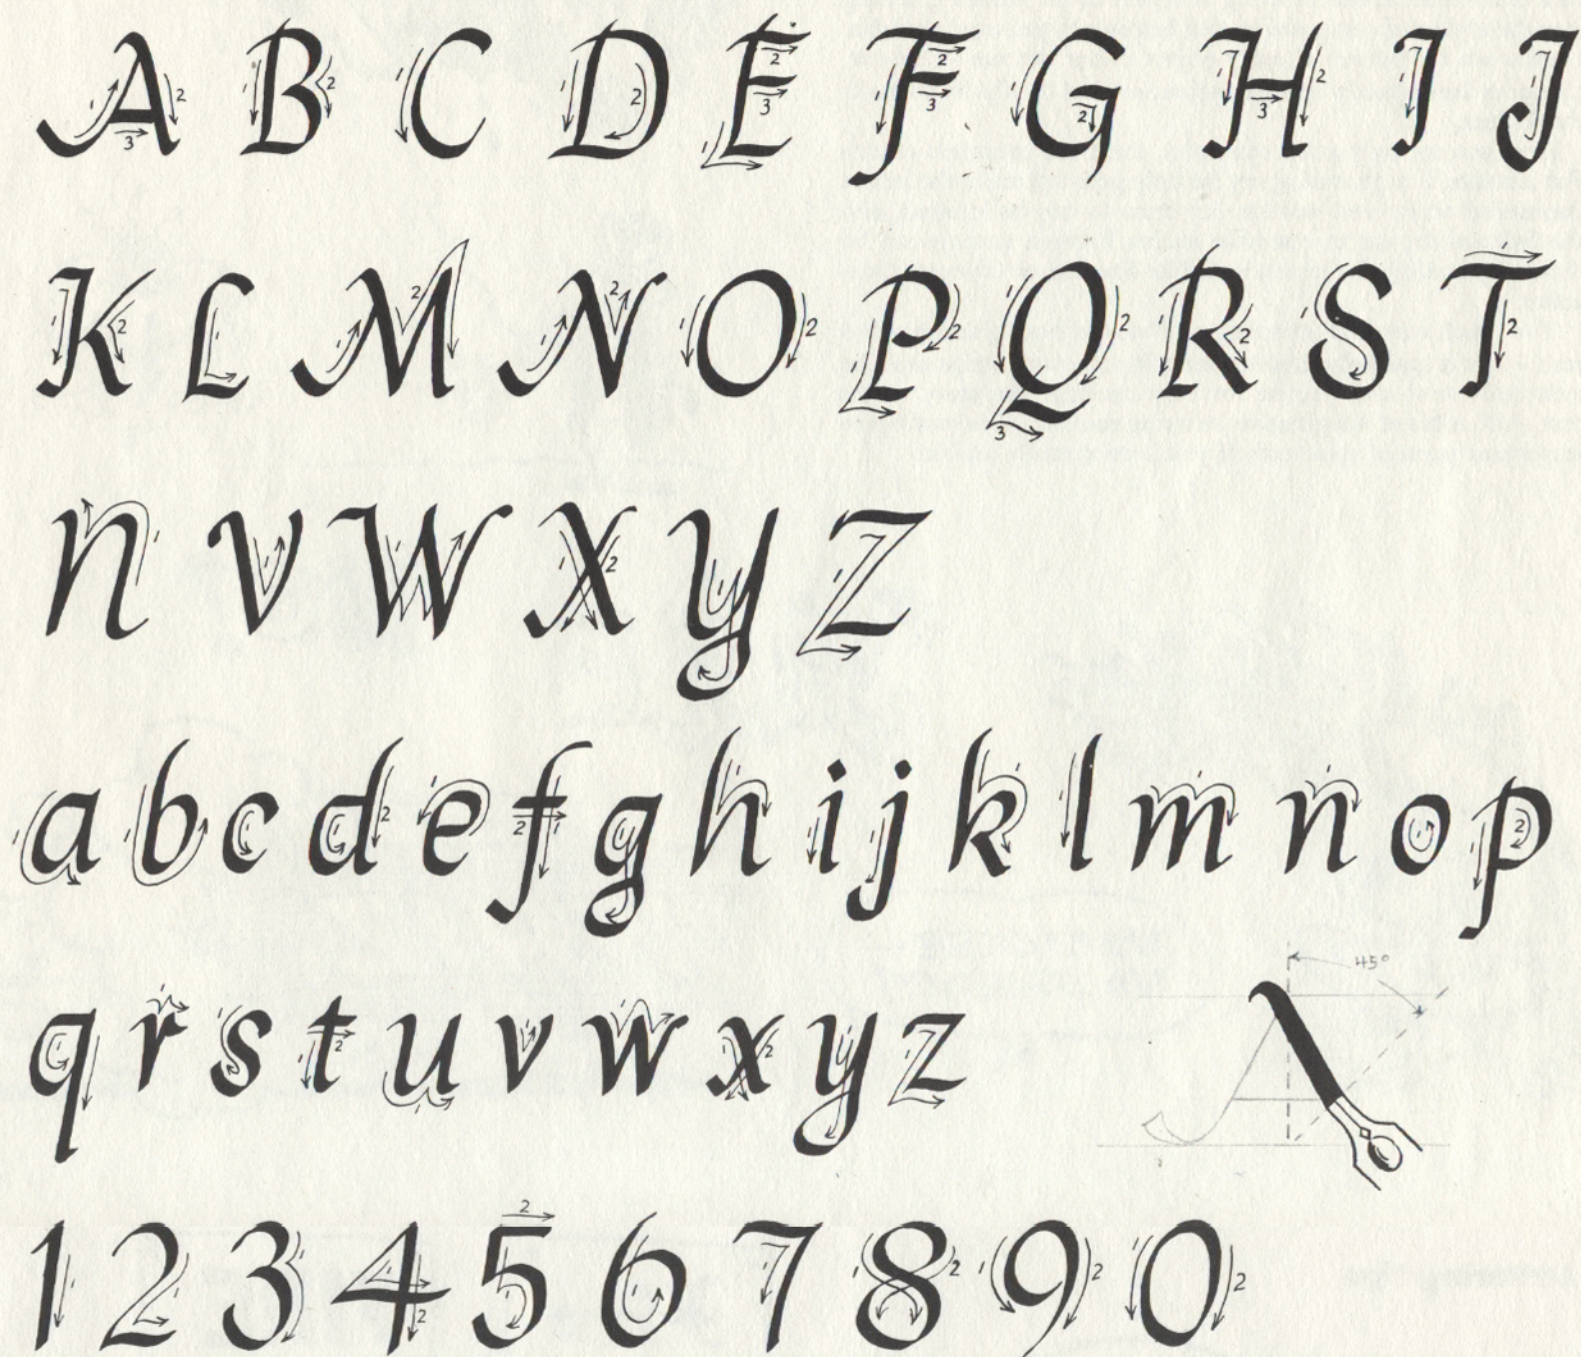 A B C D E F G H I J
K L M N O P Q R S T
n V W X Y Z
a b c d e f g h i j k l m n o p
45°
q r s t u v w x y z
1 2 3 4 5 6 7 8 9 0